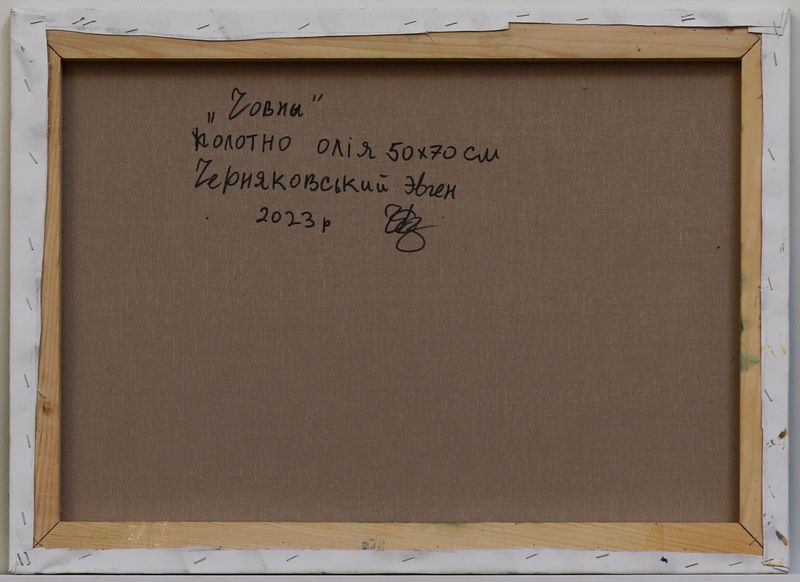 „Човни"
полотно олія 50х70см
Черняковський Эвген
2023р